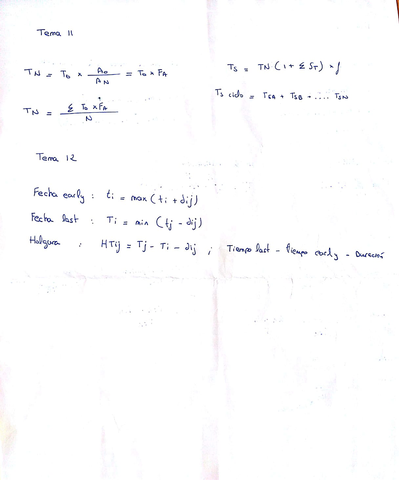 Tema 11
TN = To × Ao / AN = To × FA
TS = TN (1 + Σ ST) × f
TN = Σ To × FA / N
Ts ciclo = TSA + TSB + .... TSN
Tema 12
Fecha early : ti = max (ti + dij)
Fecha last : Ti = min (tj - dij)
Holgura : HTij = Tj - Ti - dij ; Tiempo last - tiempo early - Duración